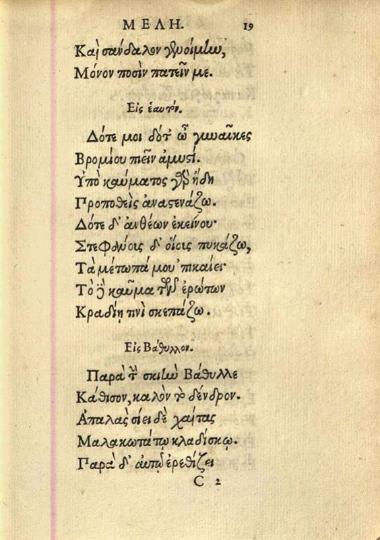 ΜΕΛΗ. 19
Καὶ σάνδαλον γενοίμην,
Μόνον ποσὶν πατεῖν με.
Εἰς ἑαυτόν.
Δότε μοι δότ' ὦ γυναῖκες
Βρομίου πιεῖν ἀμυστί.
Ὑπὸ καύματος γὰρ ἤδη
Προποθεὶς ἀναστενάζω.
Δότε δ' ἀνθέων ἐκείνου·
Στεφάνοις δ' οἵοις πυκάζω,
Τὰ μέτωπά μου 'πικαίει·
Τὸ δὲ καῦμα τῶν ἐρώτων
Κραδίη τινὶ σκεπάζω.
Εἰς Βάθυλλον.
Παρὰ τὴν σκιὴν Βάθυλλε
Κάθισον, καλὸν τὸ δένδρον.
Ἁπαλὰς σίει δὲ χαίτας
Μαλακωτάτῳ κλαδίσκῳ.
Παρὰ δ' αὐτῷ ἐρεθίζει
C 2